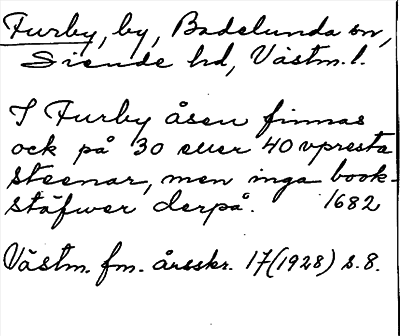 Furby, by, Badelunda sn,
Siende hd, Västm. l.
I Furby åsen finnas
ock på 30 eller 40 vpresta
steenar, men inga book-
stäfwer derpå. 1682
Västm. fm. årsskr. 17(1928) s. 8.